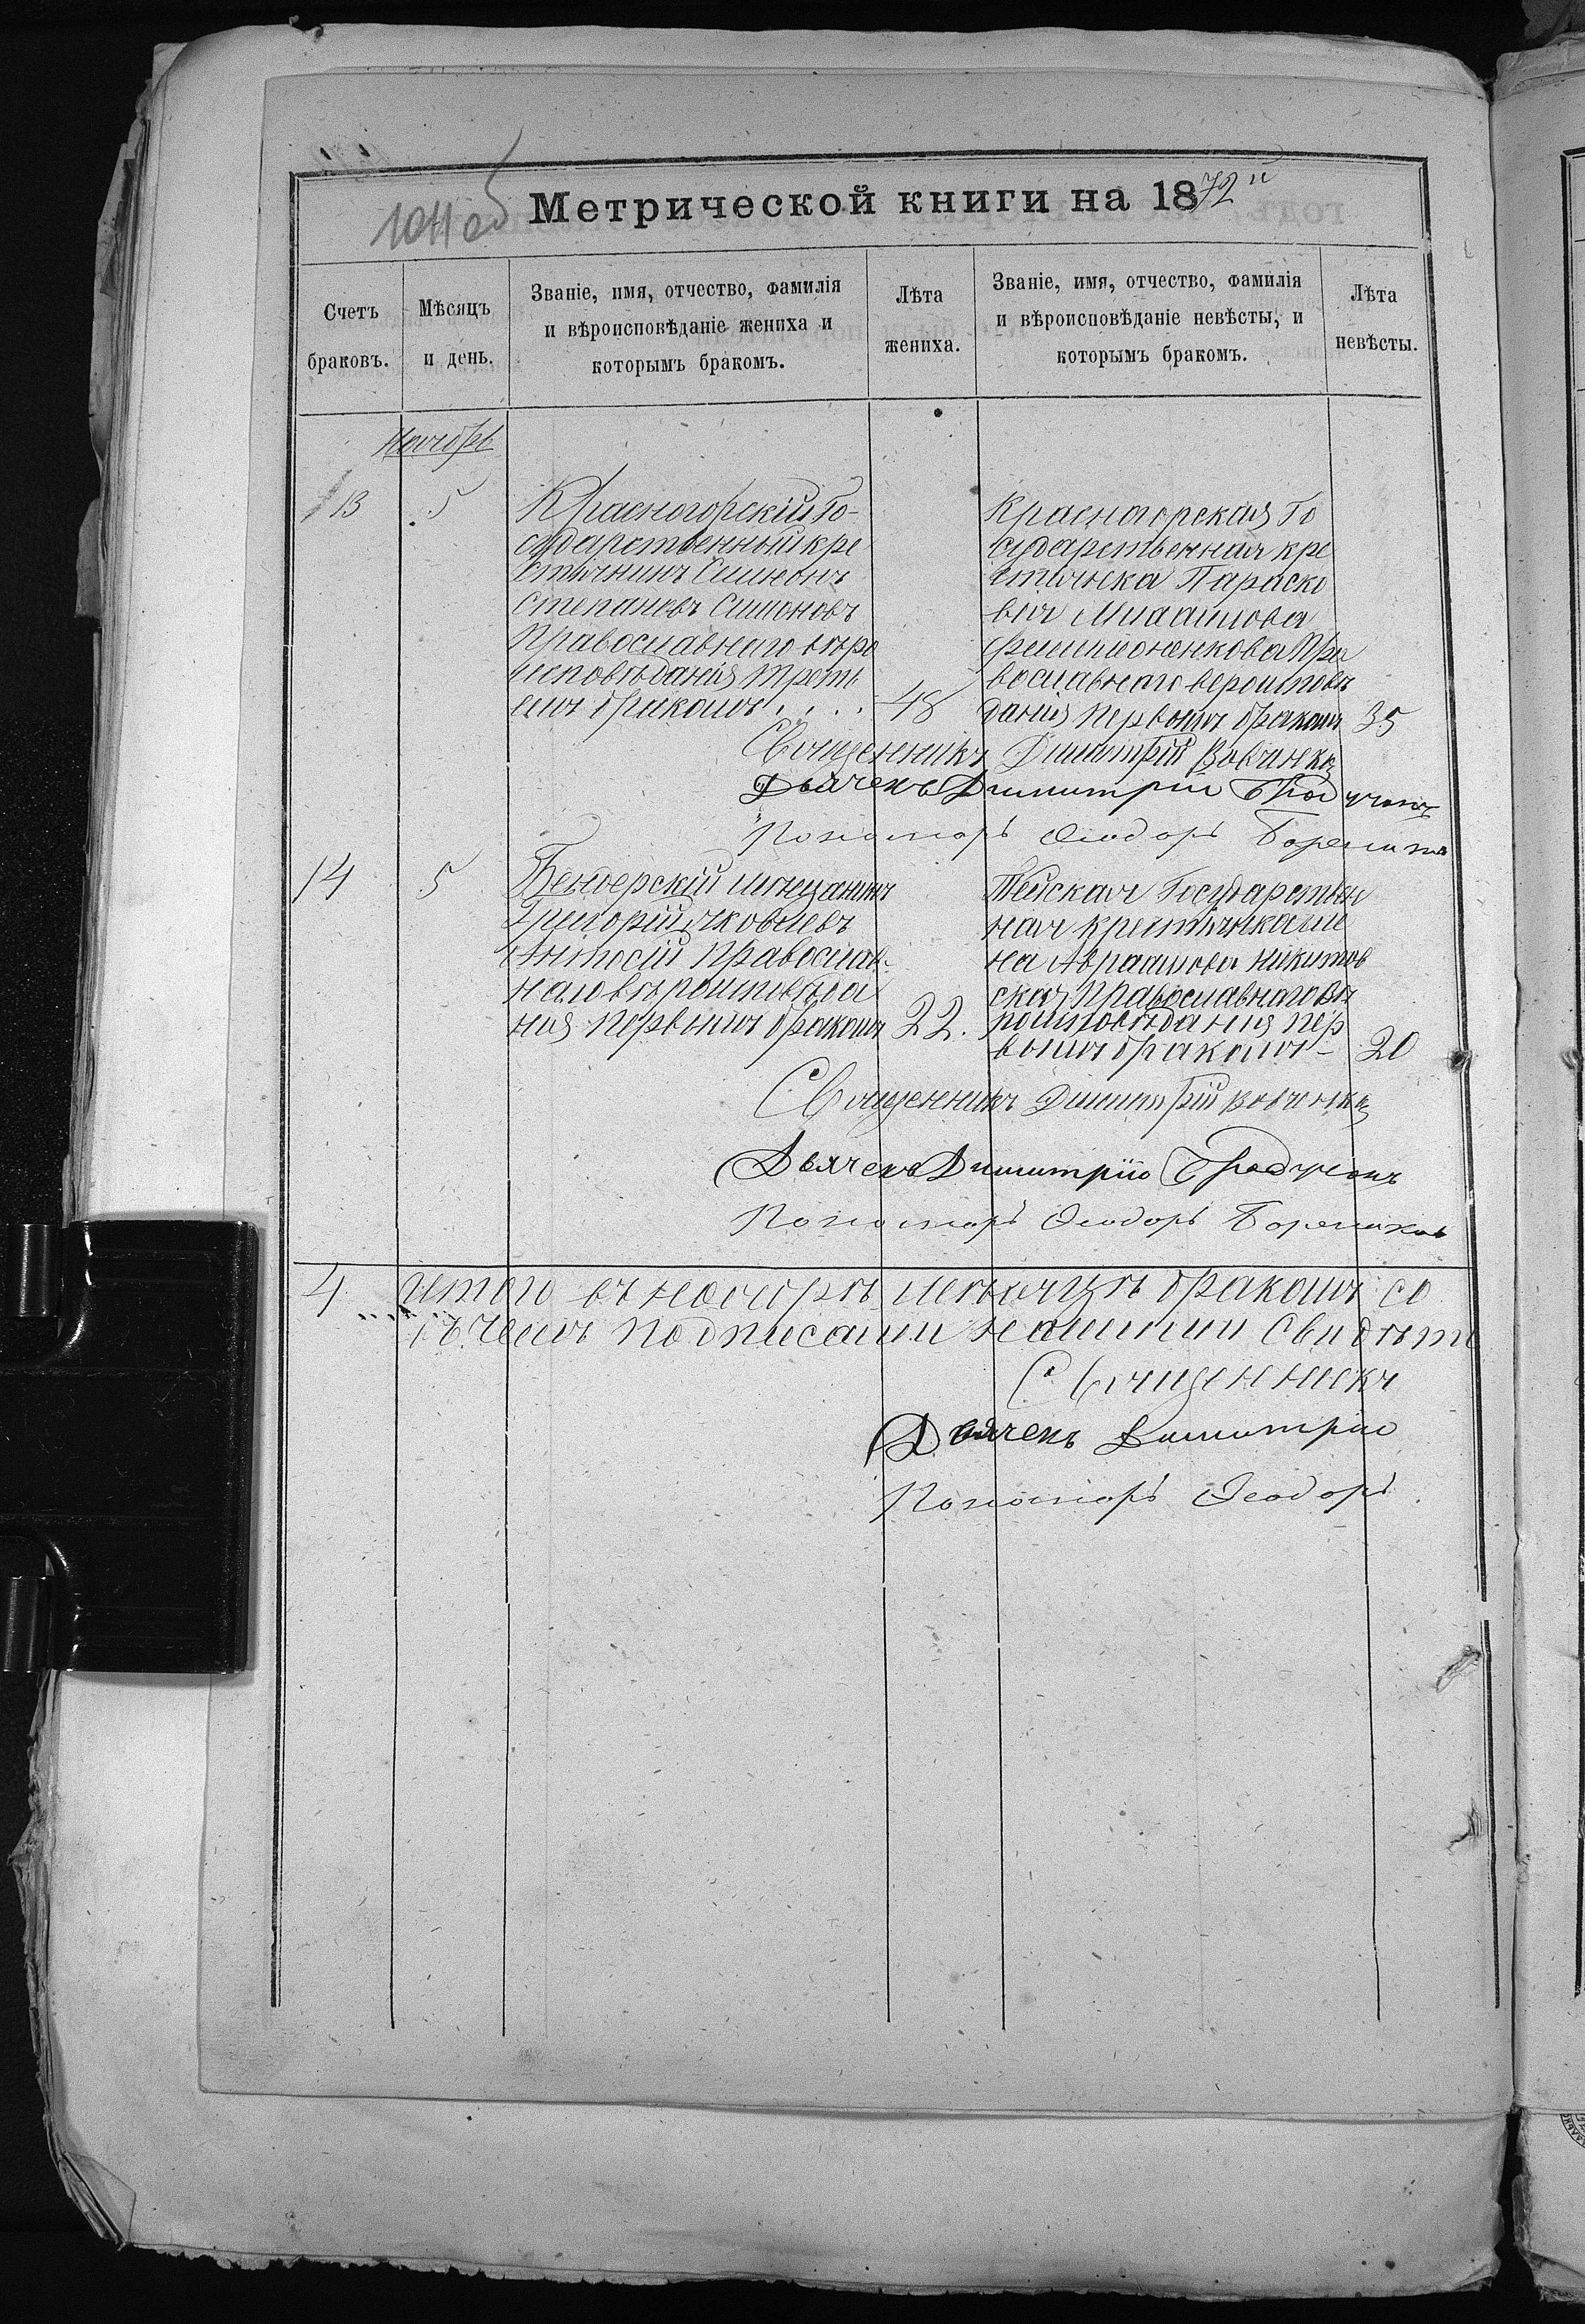 1041 об
Метрической книги на 1872й
Счетъ браковъ.
Мѣсяцъ и день.
Званіе, имя, отчество, фамилія
и вѣроисповѣданіе жениха и
которымъ бракомъ.
Лѣта жениха.
Званіе, имя, отчество, фамилія
и вѣроисповѣданіе невѣсты, и
которымъ бракомъ.
Лѣта невѣсты.
Ноябрь
13
5
Красногорскій Го-
сударственный кре
стянинъ Симеонъ
Степановъ Симоновъ
Православнаго вѣро
исповѣданія треть
имъ бракомъ . . . .
48
Красногорская Го
сударственная кре
стянка Параске
вія Михайлова
Православнаго вероисповѣ
данія первымъ бракомъ
35
Священникъ Димитрій
Дьячекъ Димитрій
Пономарь Ѳеодоръ
14
5
Бендерскій мѣщанинъ
Григорій Яковлевъ
Антосій Православ-
наго вѣроисповѣда
нія первымъ бракомъ
22.
Тейская Государствен
ная крестянка Еле
на Авраамова Никитов
ская Православнаго вѣ
роисповѣданія пер
вымъ бракомъ -
20
Священникъ Димитрій
Дьячекъ Димитрій
Пономарь Ѳеодоръ
4
итого въ ноябрѣ мѣсяцѣ бракомъ со
въ чемъ подписами нашими свидѣте
Священникъ
Дьячекъ Димитрій
Пономарь Ѳеодоръ